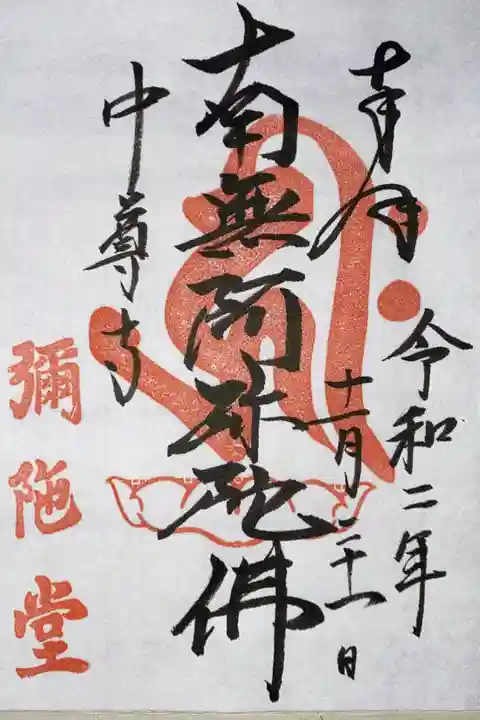 奉拝
令和二年
十一月二十一日
南無阿弥陀佛
中尊寺
彌陀堂